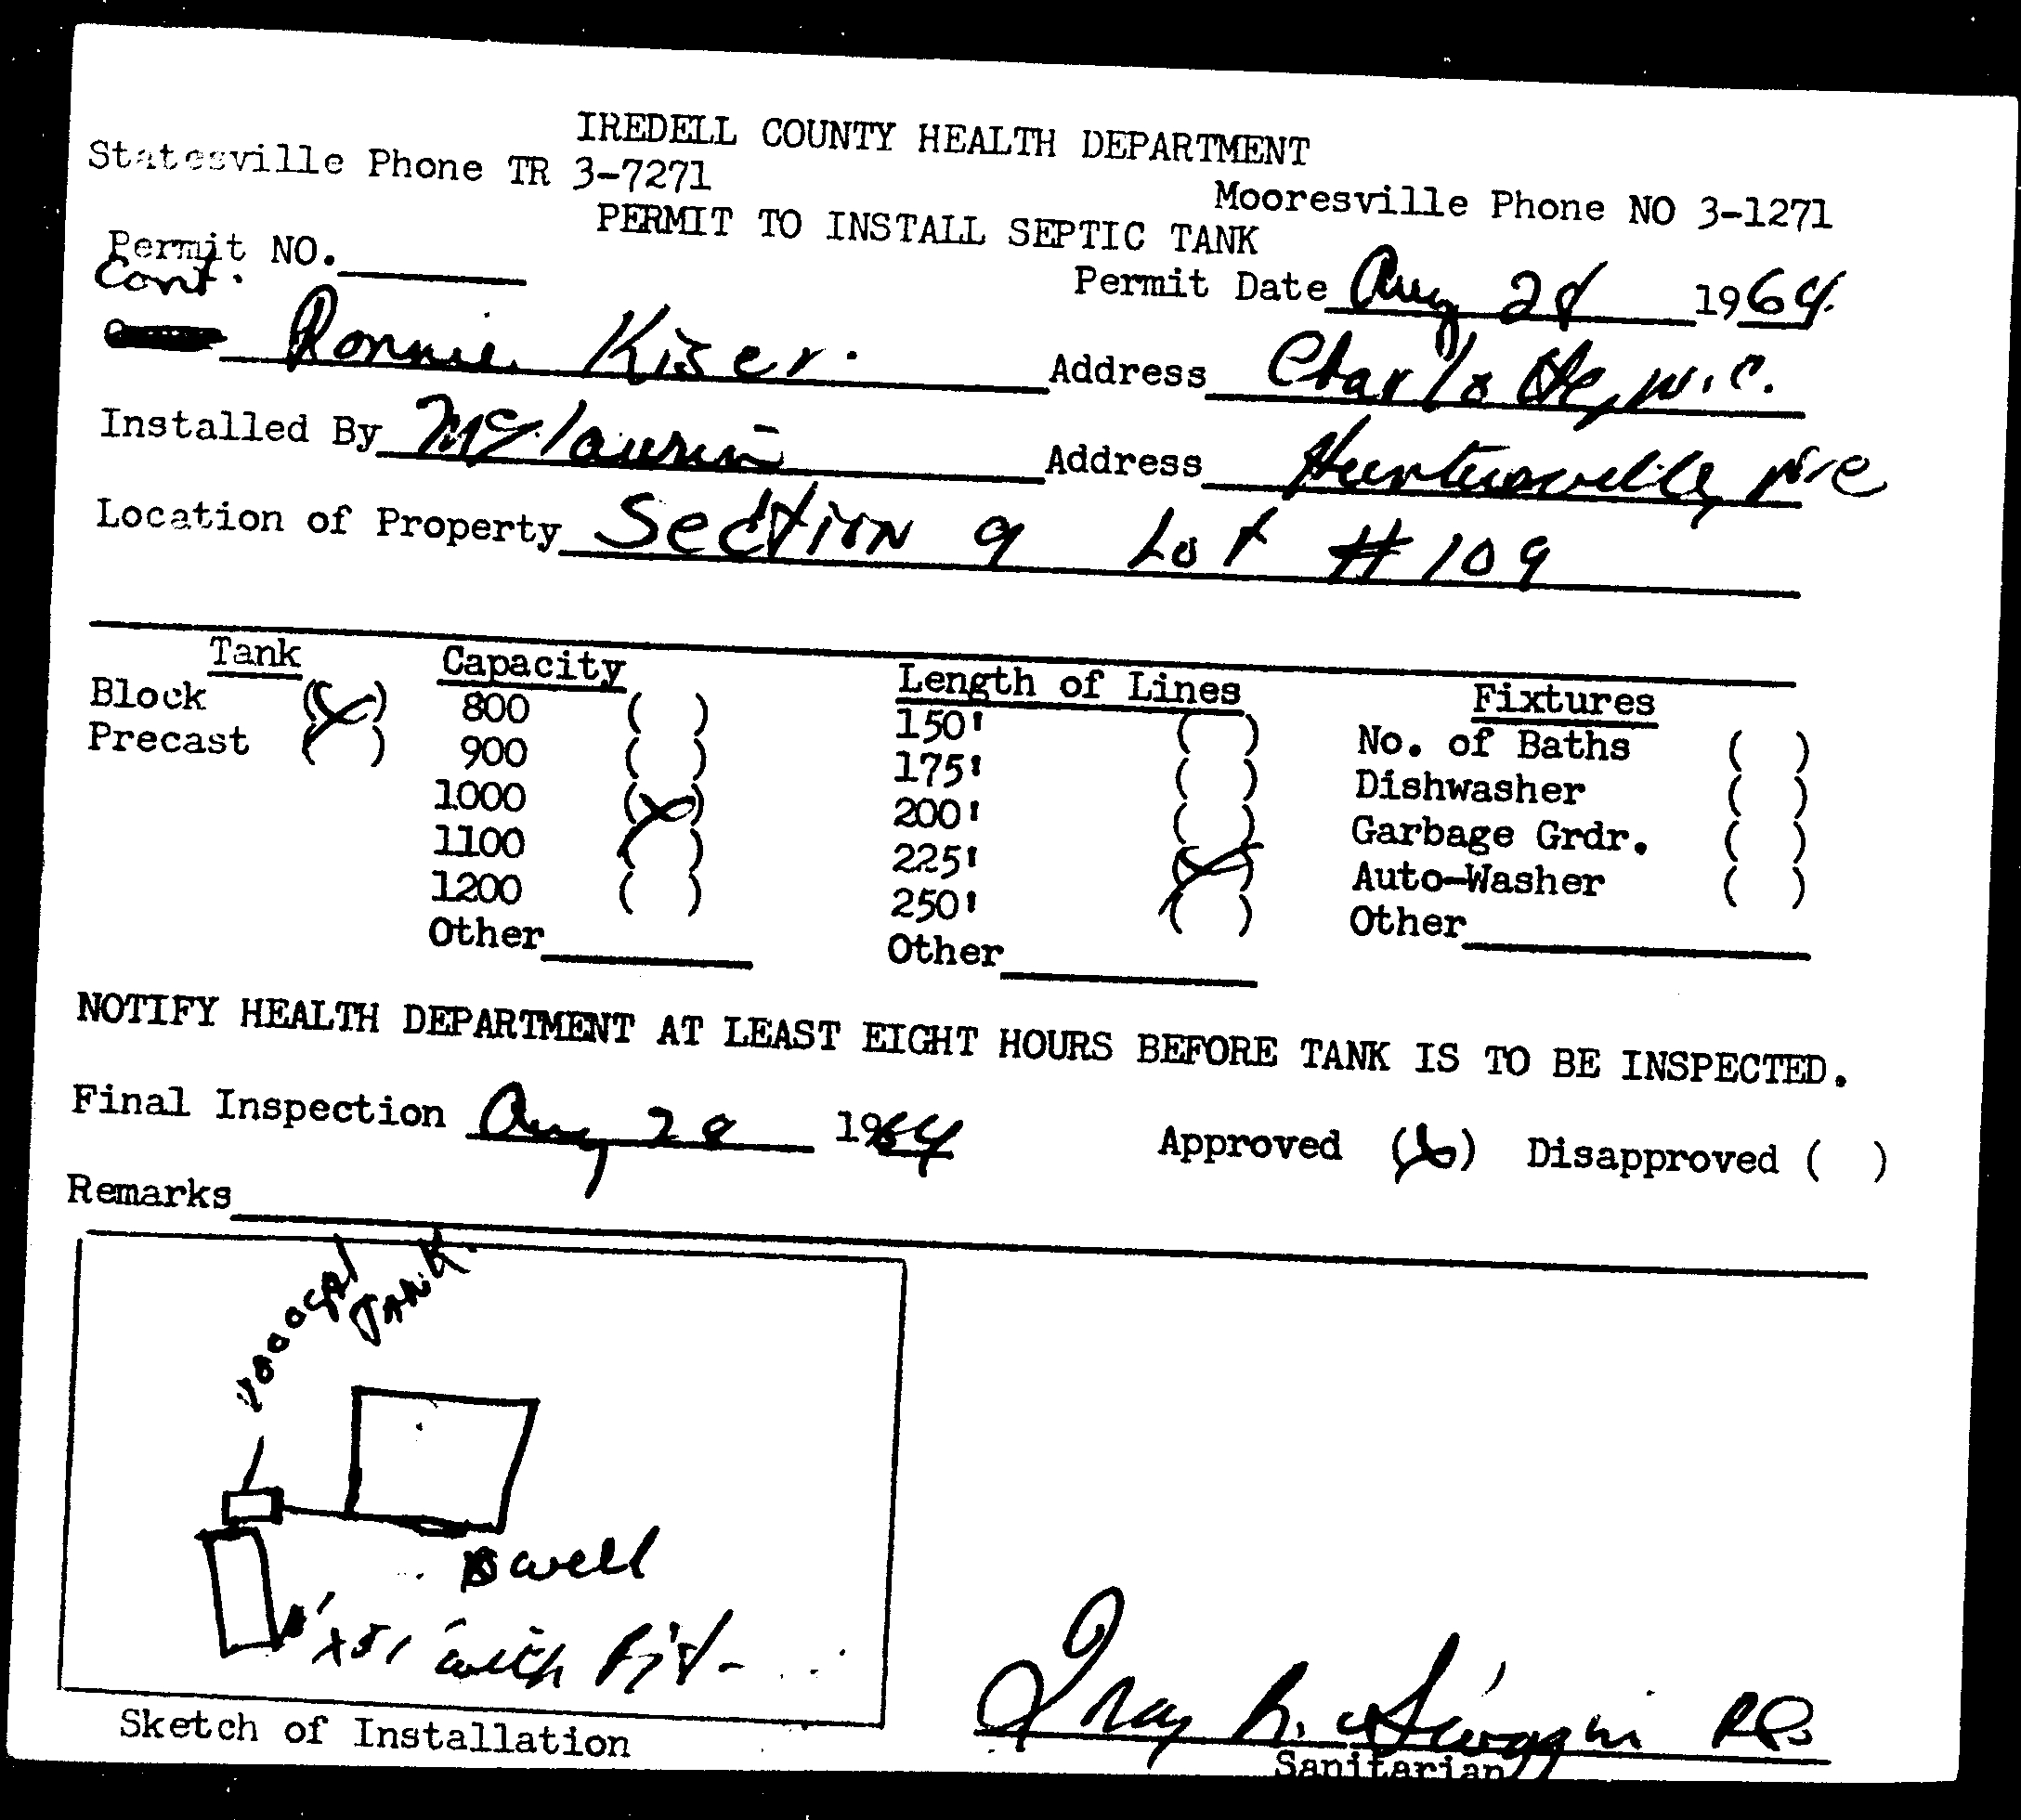 IREDELL COUNTY HEALTH DEPARTMENT
Statesville Phone TR 3-7271
Mooresville Phone NO 3-1271
PERMIT TO INSTALL SEPTIC TANK
Permit NO.
Permit Date Aug 28 1964
Cont.
Ronnie Kiser. Address Charlotte, N.C.
Installed By McLaurin Address Huntersville, N.C
Location of Property Section 9 Lot #109
Tank Capacity Length of Lines Fixtures
Block (X) 800 ( ) 150' ( ) No. of Baths ( )
Precast ( ) 900 ( ) 175' ( ) Dishwasher ( )
1000 (X) 200' ( ) Garbage Grdr. ( )
1100 ( ) 225' (X) Auto-Washer ( )
1200 ( ) 250' ( ) Other
Other Other
NOTIFY HEALTH DEPARTMENT AT LEAST EIGHT HOURS BEFORE TANK IS TO BE INSPECTED.
Final Inspection Aug 28 1964 Approved (X) Disapproved ( )
Remarks
1000 gal
TANK.
well
with
Sketch of Installation
R.S.
Sanitarian